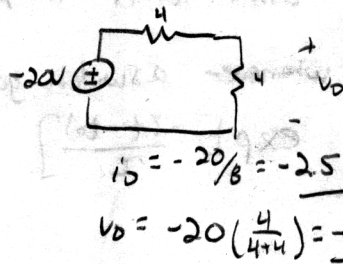 4
-20V ± 4 + V₀ -
i₀ = -20/8 = -2.5
V₀ = -20(4/(4+4)) = -